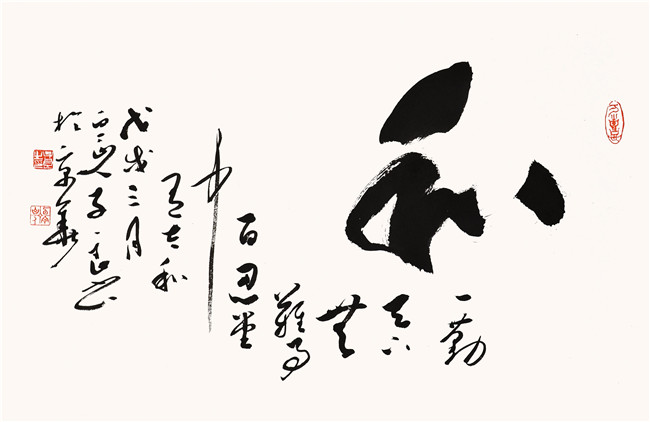 和
一勤
天下
無
難事
百忍堂
中
有太和
戊戌三月
於京華